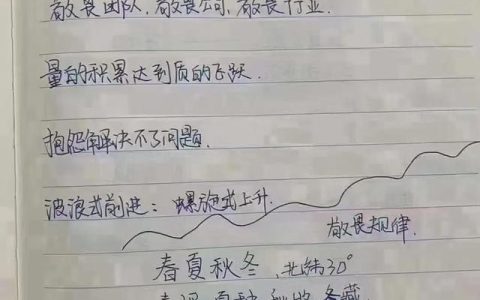 敬畏团队，敬畏公司，敬畏行业.
量的积累达到质的飞跃.
抱怨解决不了问题.
波浪式前进：螺旋式上升.
敬畏规律.
春夏秋冬，北纬30°
春 夏 秋收 冬藏